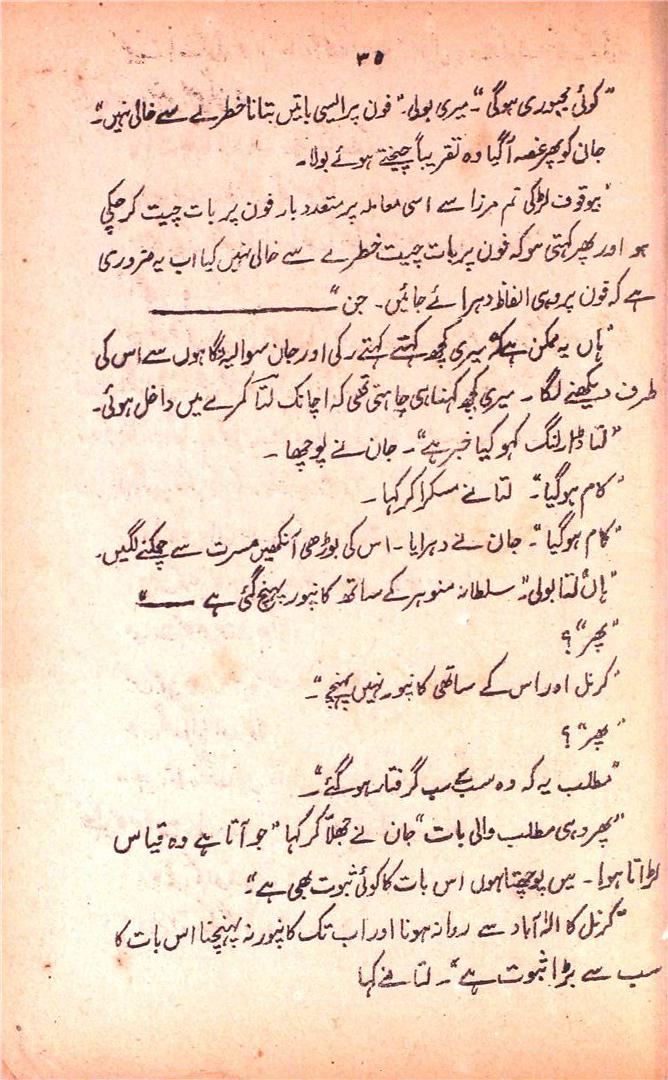 ۳۵
"کوئی مجبوری ہوگی"۔ میری بولی۔ "فون پر ایسی باتیں بتانا خطرے سے خالی نہیں"۔
جان کو پھر غصہ آگیا وہ تقریباً چیختے ہوئے بولا۔
"بیوقوف لڑکی تم مرزا سے اسی معاملہ پر متعدد بار فون پر بات چیت کر چکی
ہو اور پھر کہتی ہو کہ فون پر بات چیت خطرے سے خالی نہیں کیا اب یہ ضروری
ہے کہ فون پر وہی الفاظ دہرائے جائیں۔ جن" ـــــــــــــ
"ہاں یہ ممکن ہے" میری کچھ کہتے کہتے رکی اور جان سوالیہ نگاہوں سے اس کی
طرف دیکھنے لگا۔ میری کچھ کہنا ہی چاہتی تھی کہ اچانک لتا کمرے میں داخل ہوئی۔
"لتا ڈارلنگ کہو کیا خبر ہے"۔ جان نے پوچھا۔
"کام ہوگیا"۔ لتا نے مسکرا کر کہا۔
"کام ہوگیا"۔ جان نے دہرایا۔ اس کی بوڑھی آنکھیں مسرت سے چمکنے لگیں۔
"ہاں" لتا بولی۔ "سلطانہ منوہر کے ساتھ کانپور پہنچ گئی ہے ـــــ"
"پھر"؟
"کرنل اور اس کے ساتھی کانپور نہیں پہنچے"۔
"پھر"؟
"مطلب یہ کہ وہ سب کے سب گرفتار ہو گئے"۔
"پھر وہی مطلب والی بات" جان نے جھلّا کر کہا "جو آتا ہے وہ قیاس
لڑاتا ہوا۔ میں پوچھتا ہوں اس بات کا کوئی ثبوت بھی ہے"۔
"کرنل کا الہٰ آباد سے روانہ ہونا اور اب تک کانپور نہ پہنچنا اس بات کا
سب سے بڑا ثبوت ہے"۔ لتا نے کہا